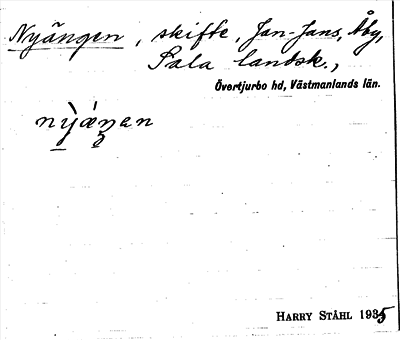 Nyängen, skifte, Jan-Jans, Åby,
Sala landsk.,
Övertjurbo hd, Västmanlands län.
nỳáŋen
HARRY STÅHL 1935